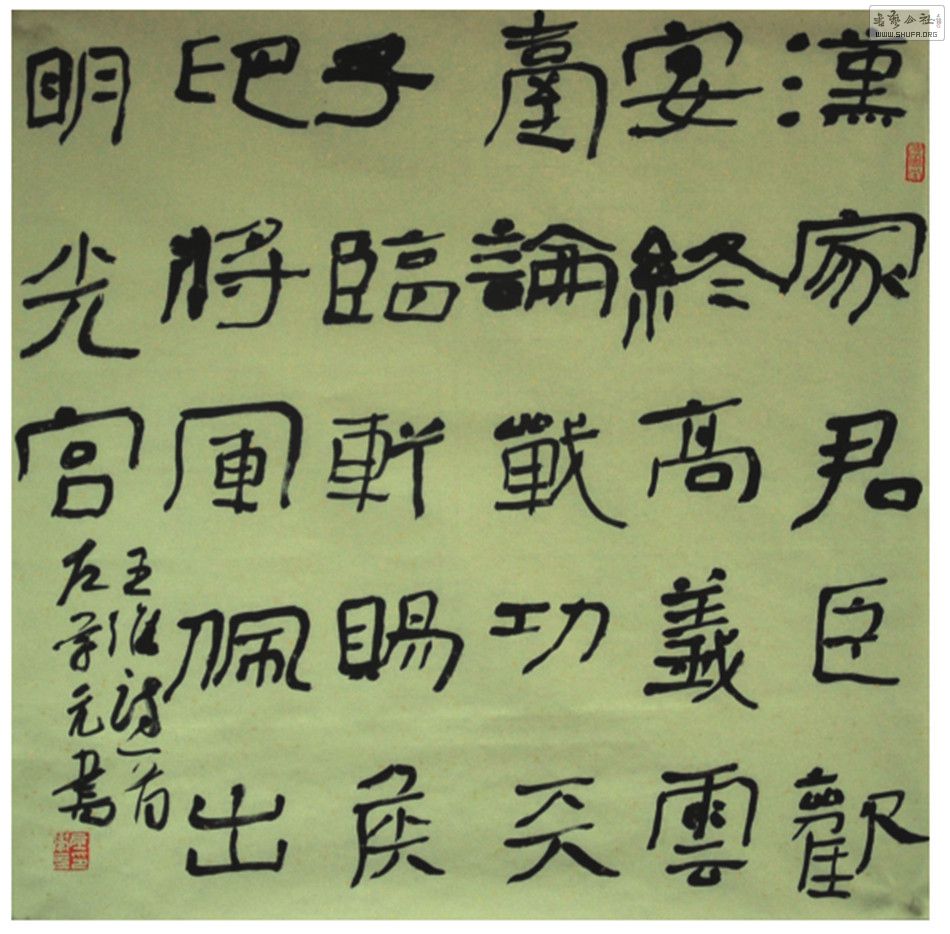 漢家君臣歡
宴終高義雲
臺論戰功天
子臨軒賜侯
印將軍佩出
明光宮
王維詩一首
左学元書
書藝公社
WWW.SHUFA.ORG